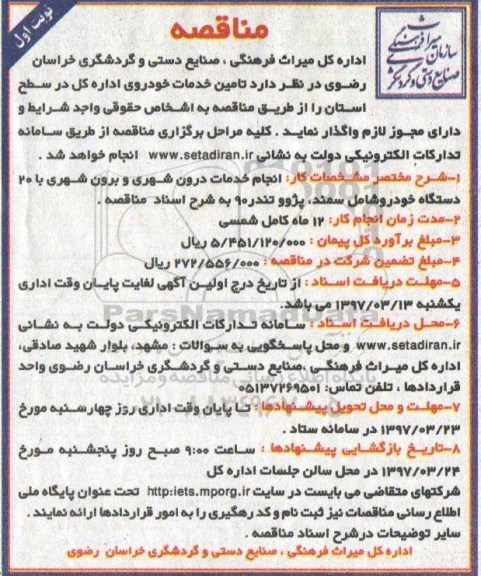 نوبت اول
مناقصه
سازمان میراث فرهنگی
صنایع دستی و گردشگری
اداره کل میراث فرهنگی ، صنایع دستی و گردشگری خراسان
رضوی در نظر دارد تامین خدمات خودروی اداره کل در سطح
استان را از طریق مناقصه به اشخاص حقوقی واجد شرایط و
دارای مجوز لازم واگذار نماید . کلیه مراحل برگزاری مناقصه از طریق سامانه
تدارکات الکترونیکی دولت به نشانی www.setadiran.ir انجام خواهد شد .
۱-شرح مختصر مشخصات کار: انجام خدمات درون شهری و برون شهری با ۲۰
دستگاه خودروشامل سمند، پژوو تندر۹۰ به شرح اسناد مناقصه .
۲-مدت زمان انجام کار: ۱۲ ماه کامل شمسی
۳-مبلغ برآورد کل پیمان : ۵/۴۵۱/۱۲۰/۰۰۰ ریال
۴-مبلغ تضمین شرکت در مناقصه : ۲۷۲/۵۵۶/۰۰۰ ریال
۵-مهلت دریافت اسناد : از تاریخ درج اولین آگهی لغایت پایان وقت اداری
یکشنبه ۱۳۹۷/۰۳/۱۳ می باشد.
۶-محل دریافت اسناد : سامانه تدارکات الکترونیکی دولت به نشانی
www.setadiran.ir و محل پاسخگویی به سوالات : مشهد، بلوار شهید صادقی،
اداره کل میراث فرهنگی ،صنایع دستی و گردشگری خراسان رضوی واحد
قراردادها ، تلفن تماس: ۰۵۱۳۷۲۶۹۵۰۱
۷-مهلت و محل تحویل پیشنهادها : تا پایان وقت اداری روز چهارشنبه مورخ
۱۳۹۷/۰۳/۲۳ در سامانه ستاد .
۸-تاریخ بازگشایی پیشنهادها : ساعت ۹:۰۰ صبح روز پنجشنبه مورخ
۱۳۹۷/۰۳/۲۴ در محل سالن جلسات اداره کل
شرکتهای متقاضی می بایست در سایت http:iets.mporg.ir تحت عنوان پایگاه ملی
اطلاع رسانی مناقصات نیز ثبت نام و کد رهگیری را به امور قراردادها ارائه نمایند .
سایر توضیحات درشرح اسناد مناقصه .
اداره کل میراث فرهنگی ، صنایع دستی و گردشگری خراسان رضوی